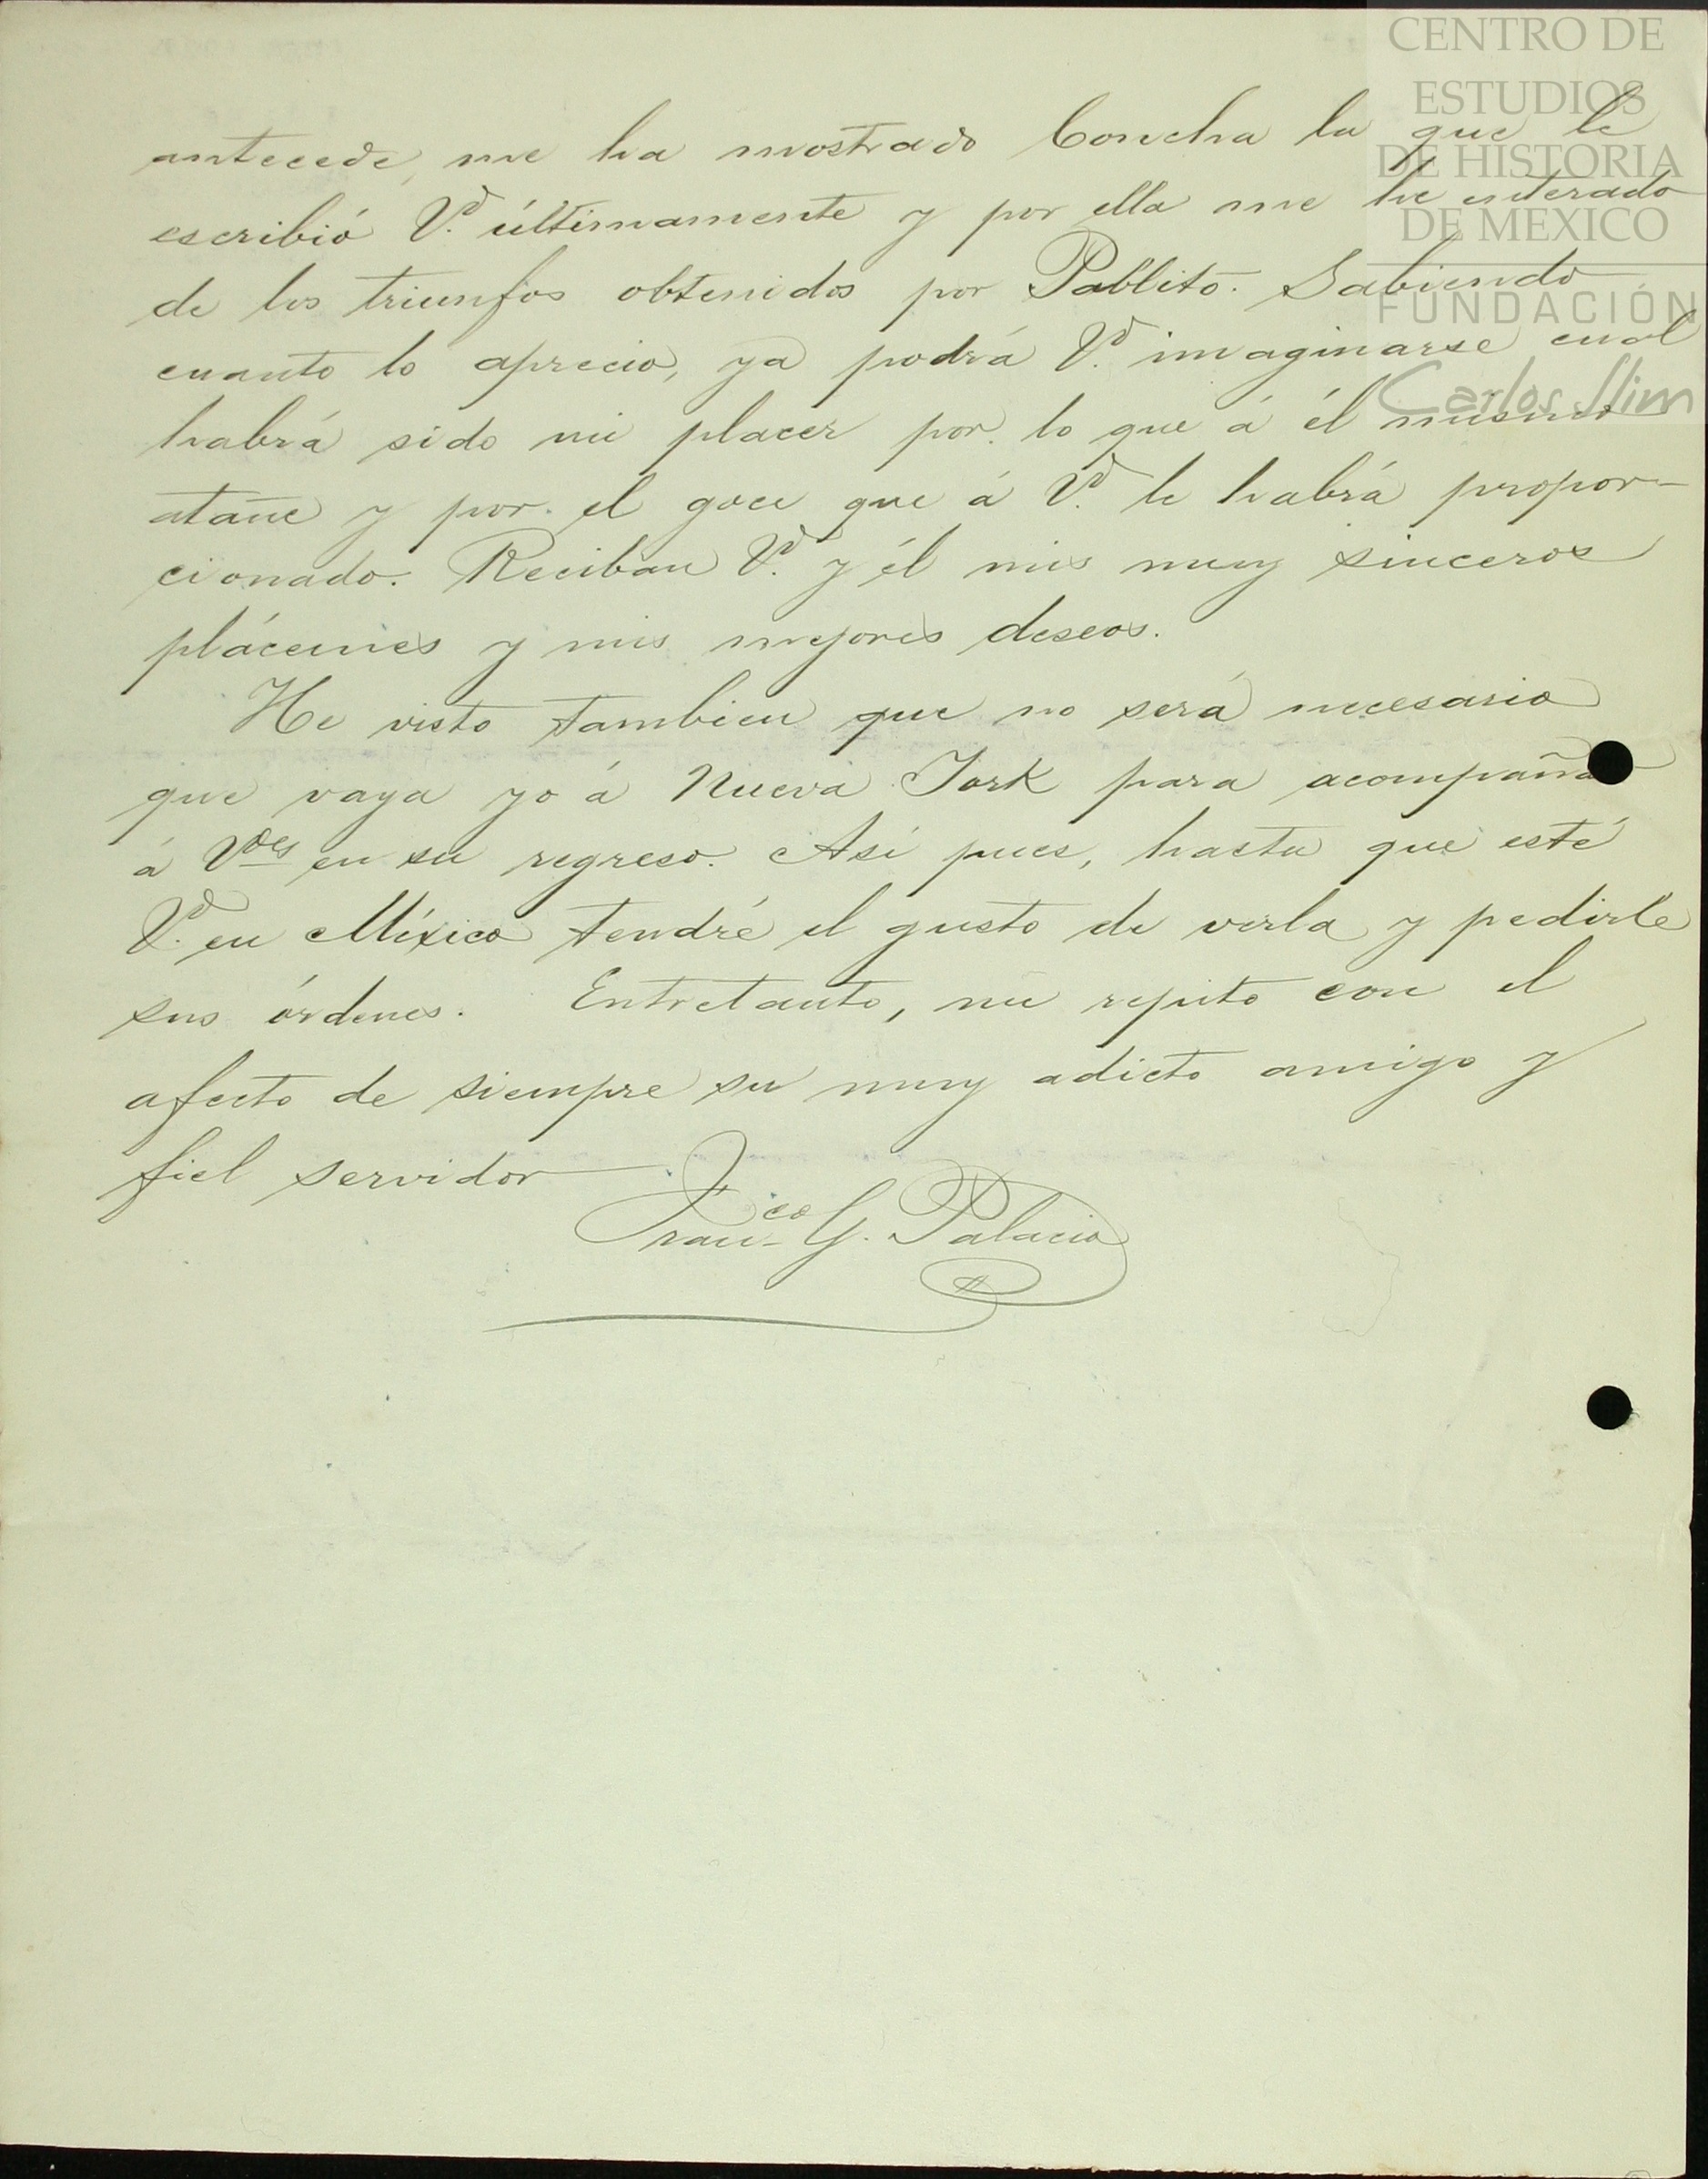 CENTRO DE
ESTUDIOS
DE HISTORIA
DE MEXICO
FUNDACIÓN
Carlos Slim
antecede, me ha mostrado Concha la que le
escribió Vd. últimamente y por ella me he enterado
de los triunfos obtenidos por Pablito. Sabiendo
cuanto lo aprecio, ya podrá Vd. imaginarse cual
habrá sido mi placer por lo que á él mismo
atañe y por el goce que á Vd. le habrá propor-
cionado. Reciban Vd. y él mis muy sinceros
plácemes y mis mejores deseos.
He visto tambien que no será necesario
que vaya yo á Nueva York para acompañar
á Vdes en su regreso. Así pues, hasta que esté
Vd. en México tendré el gusto de verla y pedirle
sus órdenes. Entretanto, me repito con el
afecto de siempre su muy adicto amigo y
fiel servidor
Franco G. Palacio